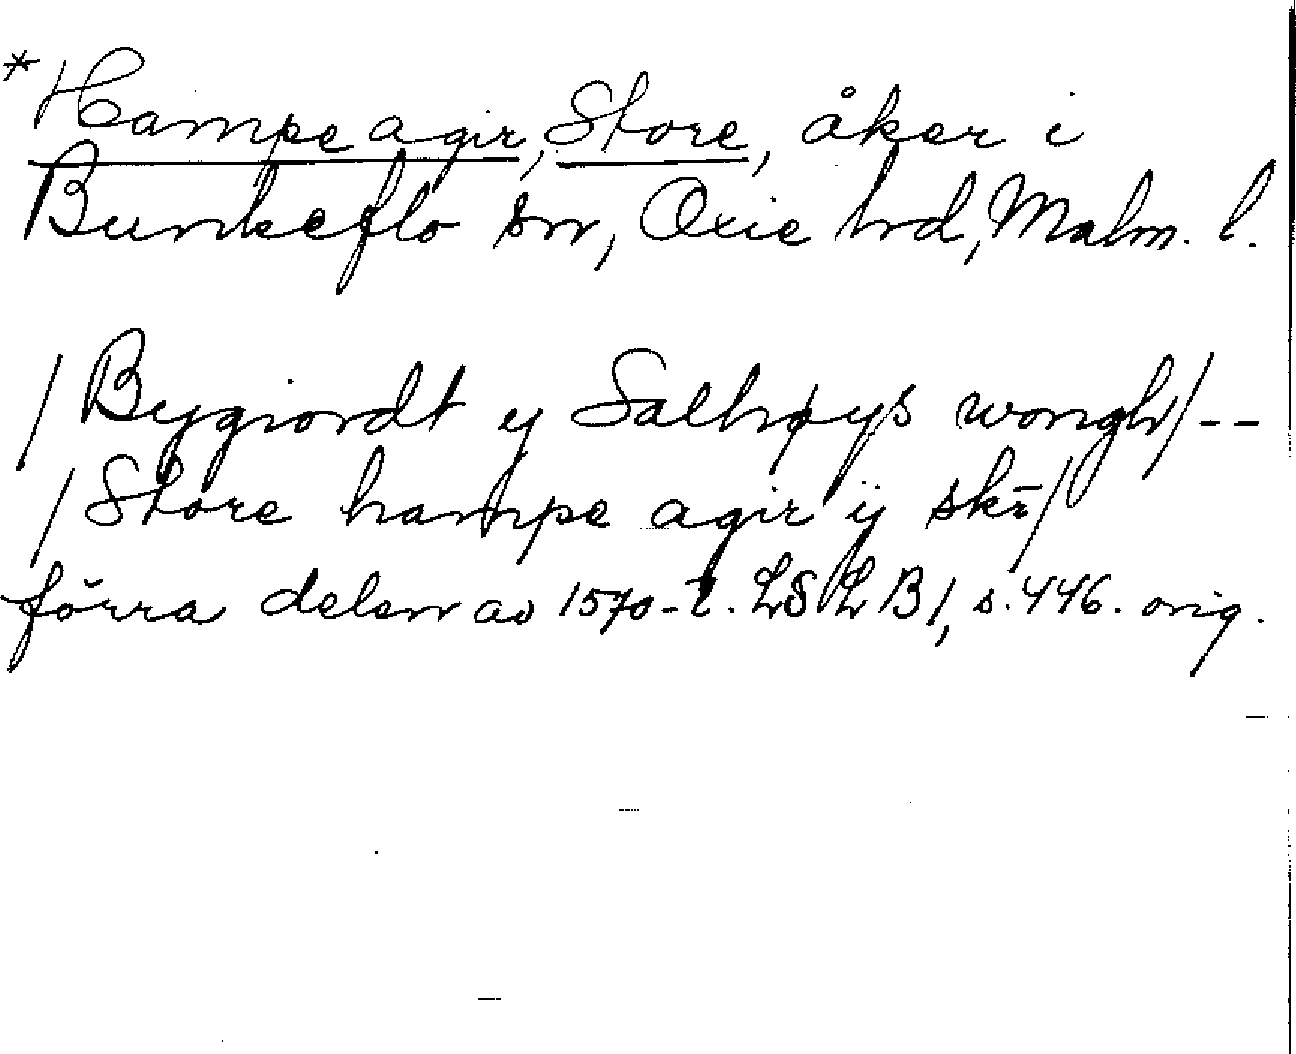 *Hampe agir, Store, åker i
Bunkeflo sn, Oxie hd, Malm. l.
/Bygiordt y Salhøys wongh/--
/Store hampe agir ÿ sk
förra delen av 1570-t. LSLB1, s. 446. orig.